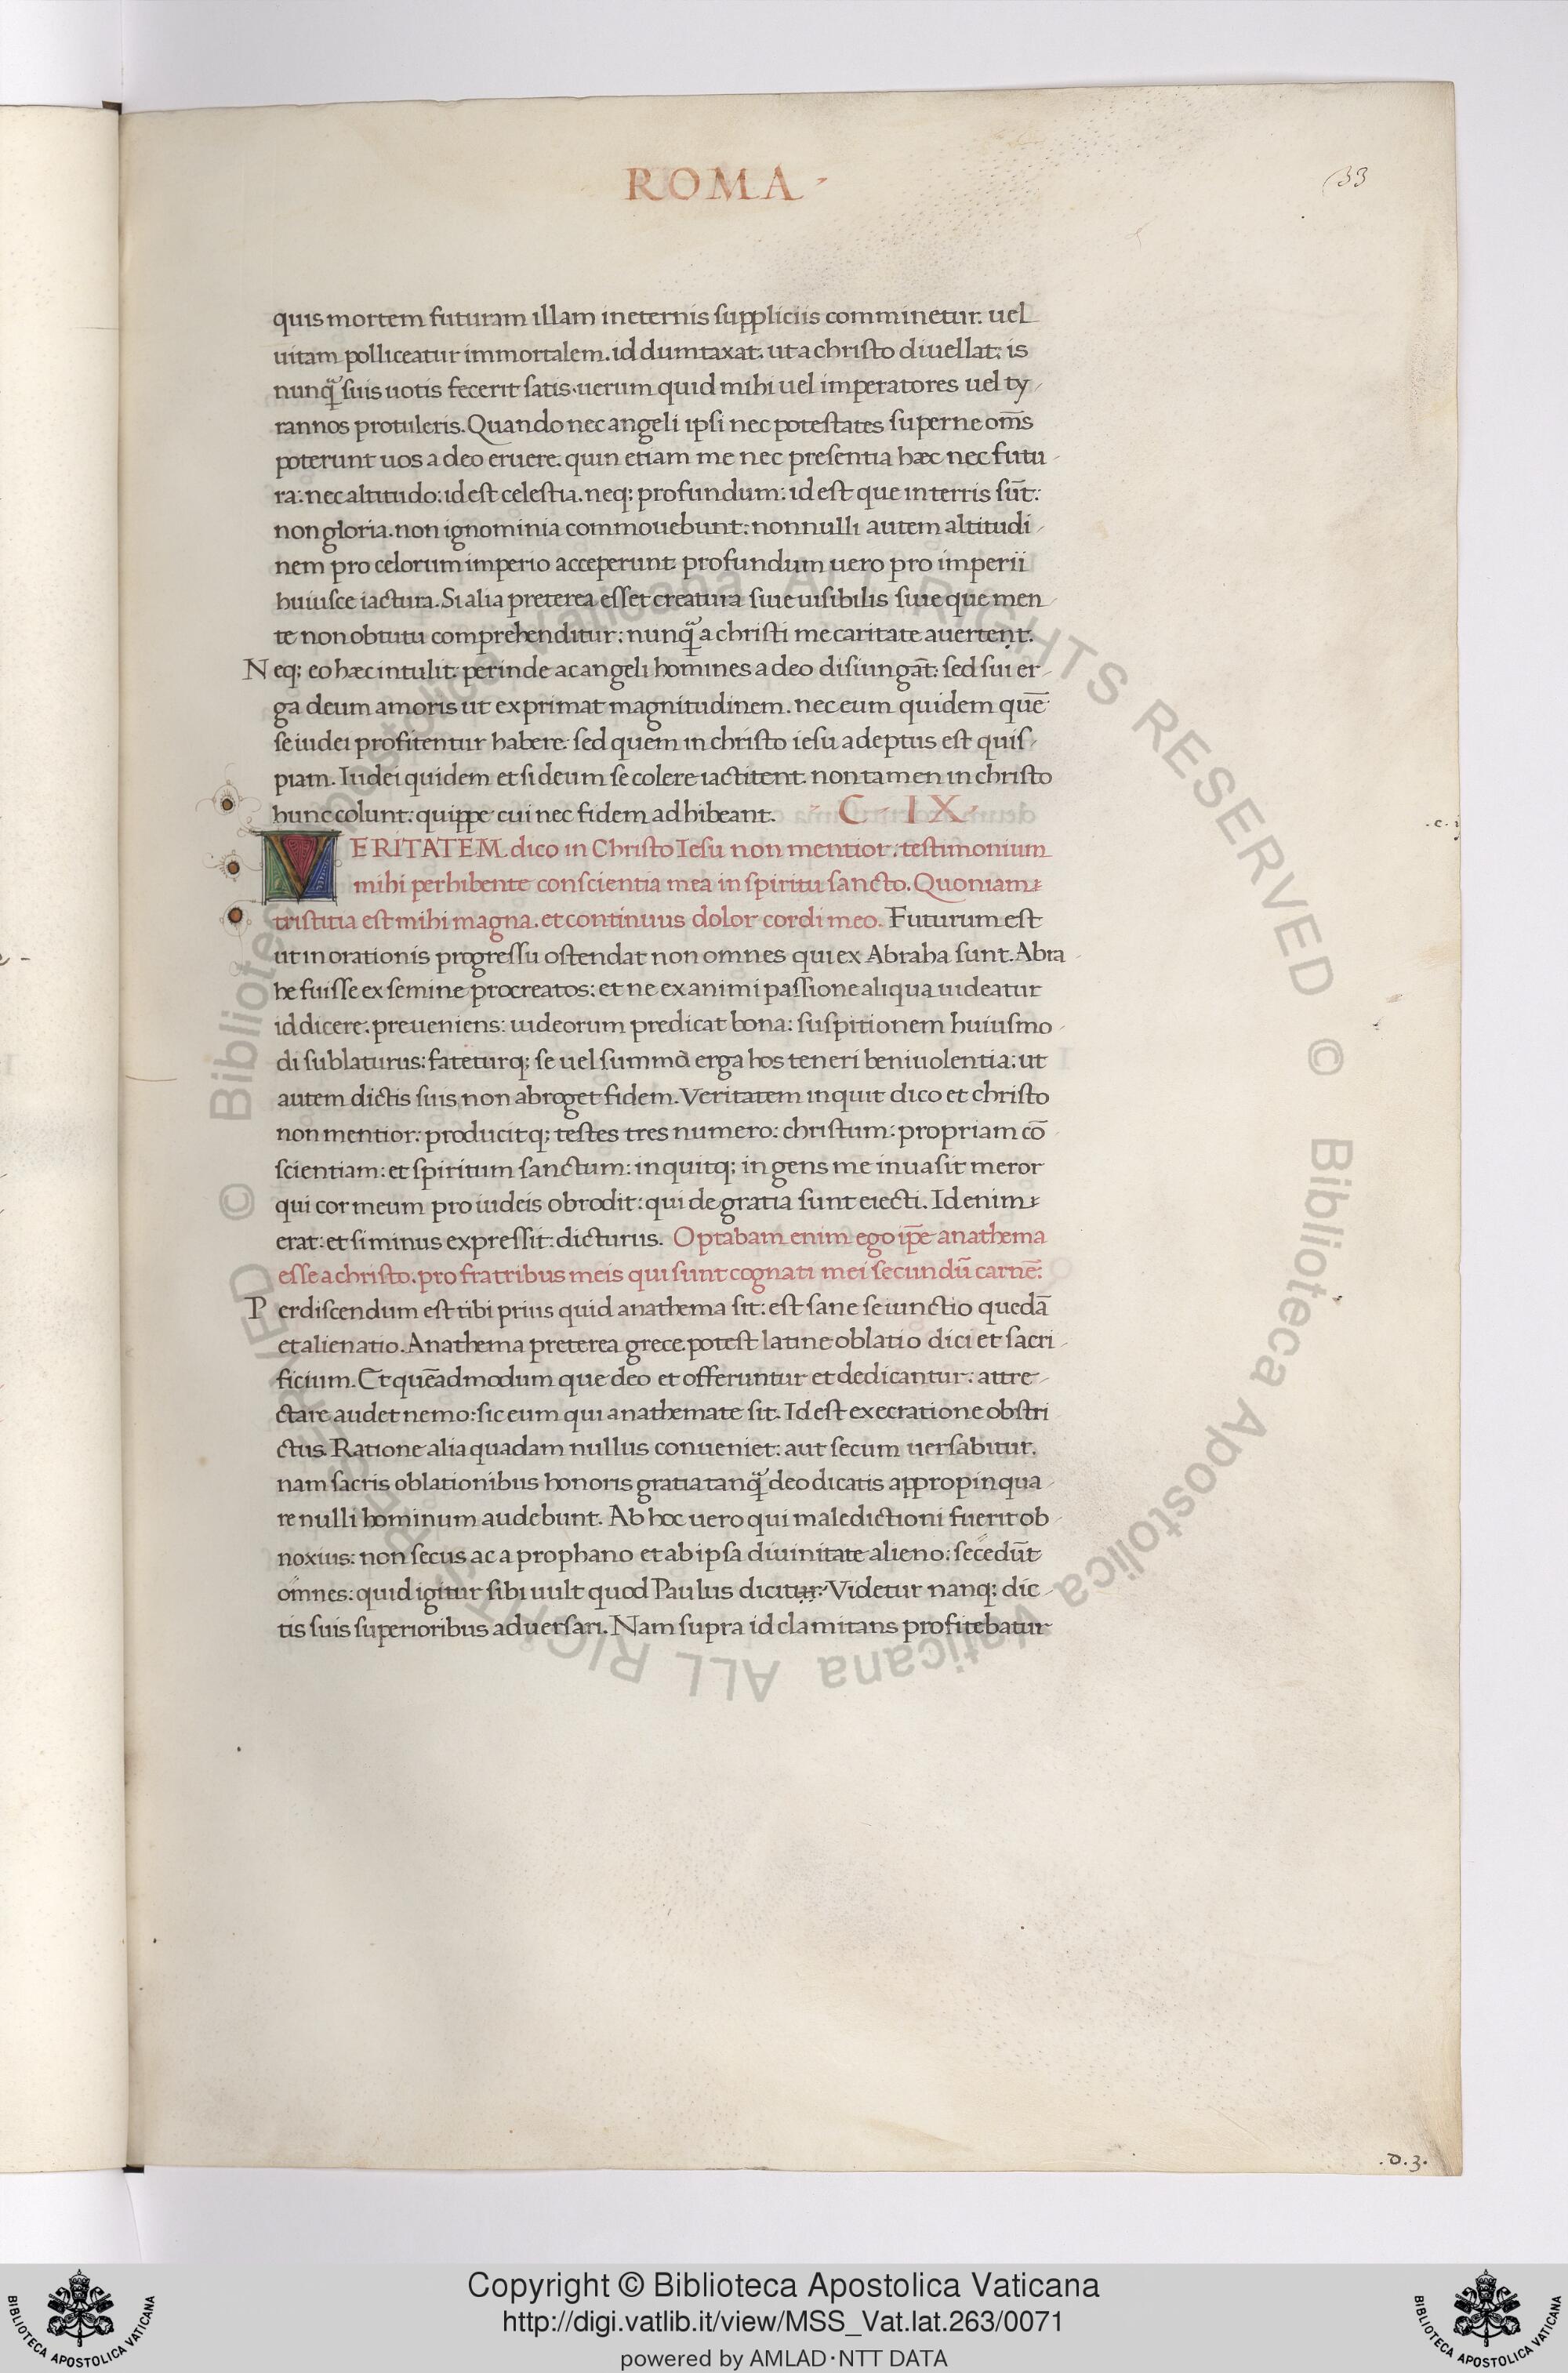 ROMA
33
quis mortem futuram illam in eternis suppliciis comminetur. uel
uitam polliceatur immortalem. id dumtaxat. ut a christo diuellat: is
nunq̃ suis uotis fecerit satis. uerum quid mihi uel imperatores uel ty-
rannos protuleris. Quando nec angeli ipsi nec potestates superne om̄s
poterunt uos a deo eruere. quin etiam me nec presentia hæc nec futu-
ra: nec altitudo: id est celestia. neq; profundum: id est que in terris sūt:
non gloria. non ignominia commouebunt: nonnulli autem altitudi-
nem pro celorum imperio acceperunt. profundum uero pro imperii
huiusce iactura. Si alia preterea esset creatura siue uisibilis siue que men-
te non obtutu comprehenditur: nunq̃ a christi me caritate auertent.
Neq; eo hæc intulit. perinde ac angeli homines a deo disiungāt: sed sui er-
ga deum amoris ut exprimat magnitudinem. nec eum quidem quē
se iudei profitentur habere. sed quem in christo iesu adeptus est quis-
piam. Iudei quidem et si deum se colere iactitent. non tamen in christo
hunc colunt: quippe cui nec fidem adhibeant. C IX
VERITATEM dico in Christo Iesu non mentior: testimonium
mihi perhibente conscientia mea in spiritu sancto. Quoniam
tristitia est mihi magna. et continuus dolor cordi meo. Futurum est
ut in orationis progressu ostendat non omnes qui ex Abraha sunt. Abra-
he fuisse ex semine procreatos: et ne ex animi passione aliqua uideatur
id dicere: preueniens: iudeorum predicat bona: suspitionem huiusmo-
di sublaturus: fateturq; se uel summa erga hos teneri beniuolentia: ut
autem dictis suis non abroget fidem. Veritatem inquit dico et christo
non mentior: producitq; testes tres numero: christum: propriam cō-
scientiam: et spiritum sanctum: inquitq; ingens me inuasit meror
qui cor meum pro iudeis obrodit: qui de gratia sunt eiecti. Id enim
erat: et si minus expressit: dicturus. Optabam enim ego ip̄e anathema
esse a christo. pro fratribus meis qui sunt cognati mei secundū carnē:
Perdiscendum est tibi prius quid anathema sit: est sane seiunctio quedā
et alienatio. Anathema preterea grece. potest latine oblatio dici et sacri-
ficium. Et quēadmodum que deo et offeruntur et dedicantur: attre-
ctare audet nemo: sic eum qui anathemate sit. Id est execratione obstri
ctus. Ratione alia quadam nullus conueniet: aut secum uersabitur.
nam sacris oblationibus honoris gratia tanq̃ deo dicatis appropinqua-
re nulli hominum audebunt. Ab hoc uero qui maledictioni fuerit ob-
noxius: non secus ac a prophano et ab ipsa diuinitate alieno: secedūt
omnes: quid igitur sibi uult quod Paulus dicitur: Videtur nanq; dic-
tis suis superioribus aduersari. Nam supra id clamitans profitebatur
.d.3.
© Biblioteca Apostolica Vaticana ALL RIGHTS RESERVED © Biblioteca Apostolica Vaticana ALL RIGHTS RESERVED
Copyright © Biblioteca Apostolica Vaticana
http://digi.vatlib.it/view/MSS_Vat.lat.263/0071
powered by AMLAD·NTT DATA
BIBLIOTECA APOSTOLICA VATICANA
BIBLIOTECA APOSTOLICA VATICANA